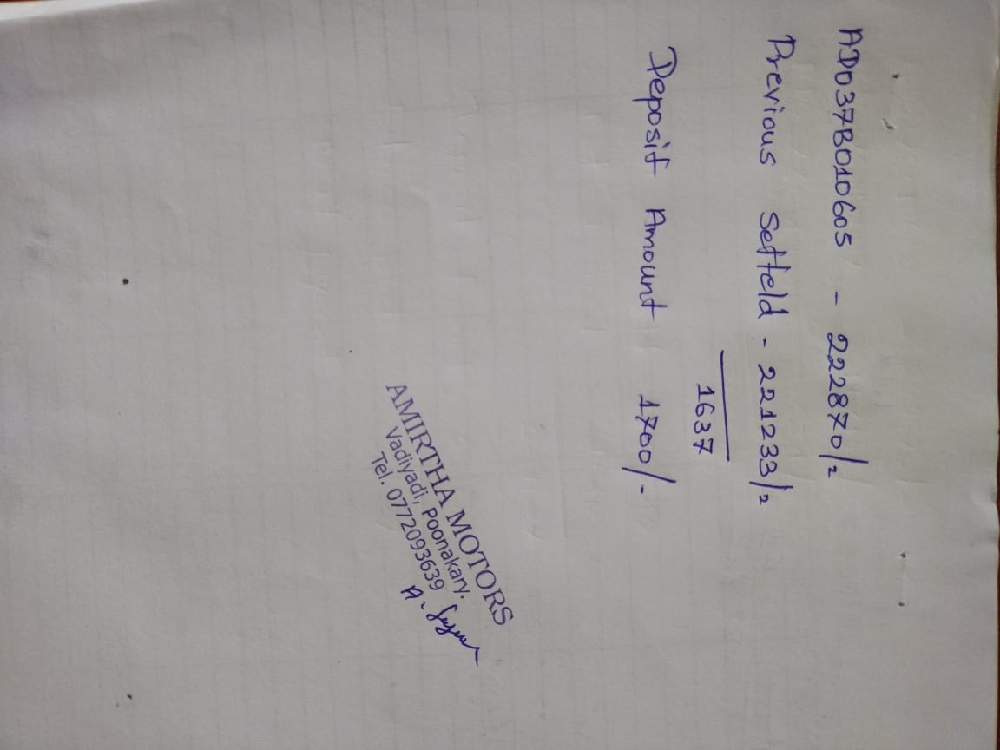 AD037B010605 - 222870/=
Previous Setteld - 221233/=
1637
Deposit Amount 1700/-
AMIRTHA MOTORS
Vadiyadi, Poonakary.
Tel. 0772093639
A.